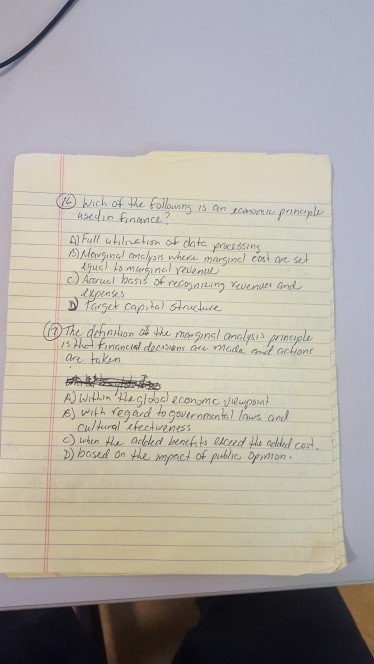 16) Wich of the following is an economic principle
used in finance?
A) Full utilization of data processing
B) Marginal analysis where marginal cost are set
equal to marginal revenue
C) Accrual basis of recognizing revenues and
expenses
D) Target capital structure
17) The definition of the marginal analysis principle
is that financial decisions are made and actions
are taken
A) Within the global economic viewpoint
B) with regard to governmental laws and
cultural efectiveness
C) when the added benefits exceed the added cost.
D) based on the impact of public opinion.